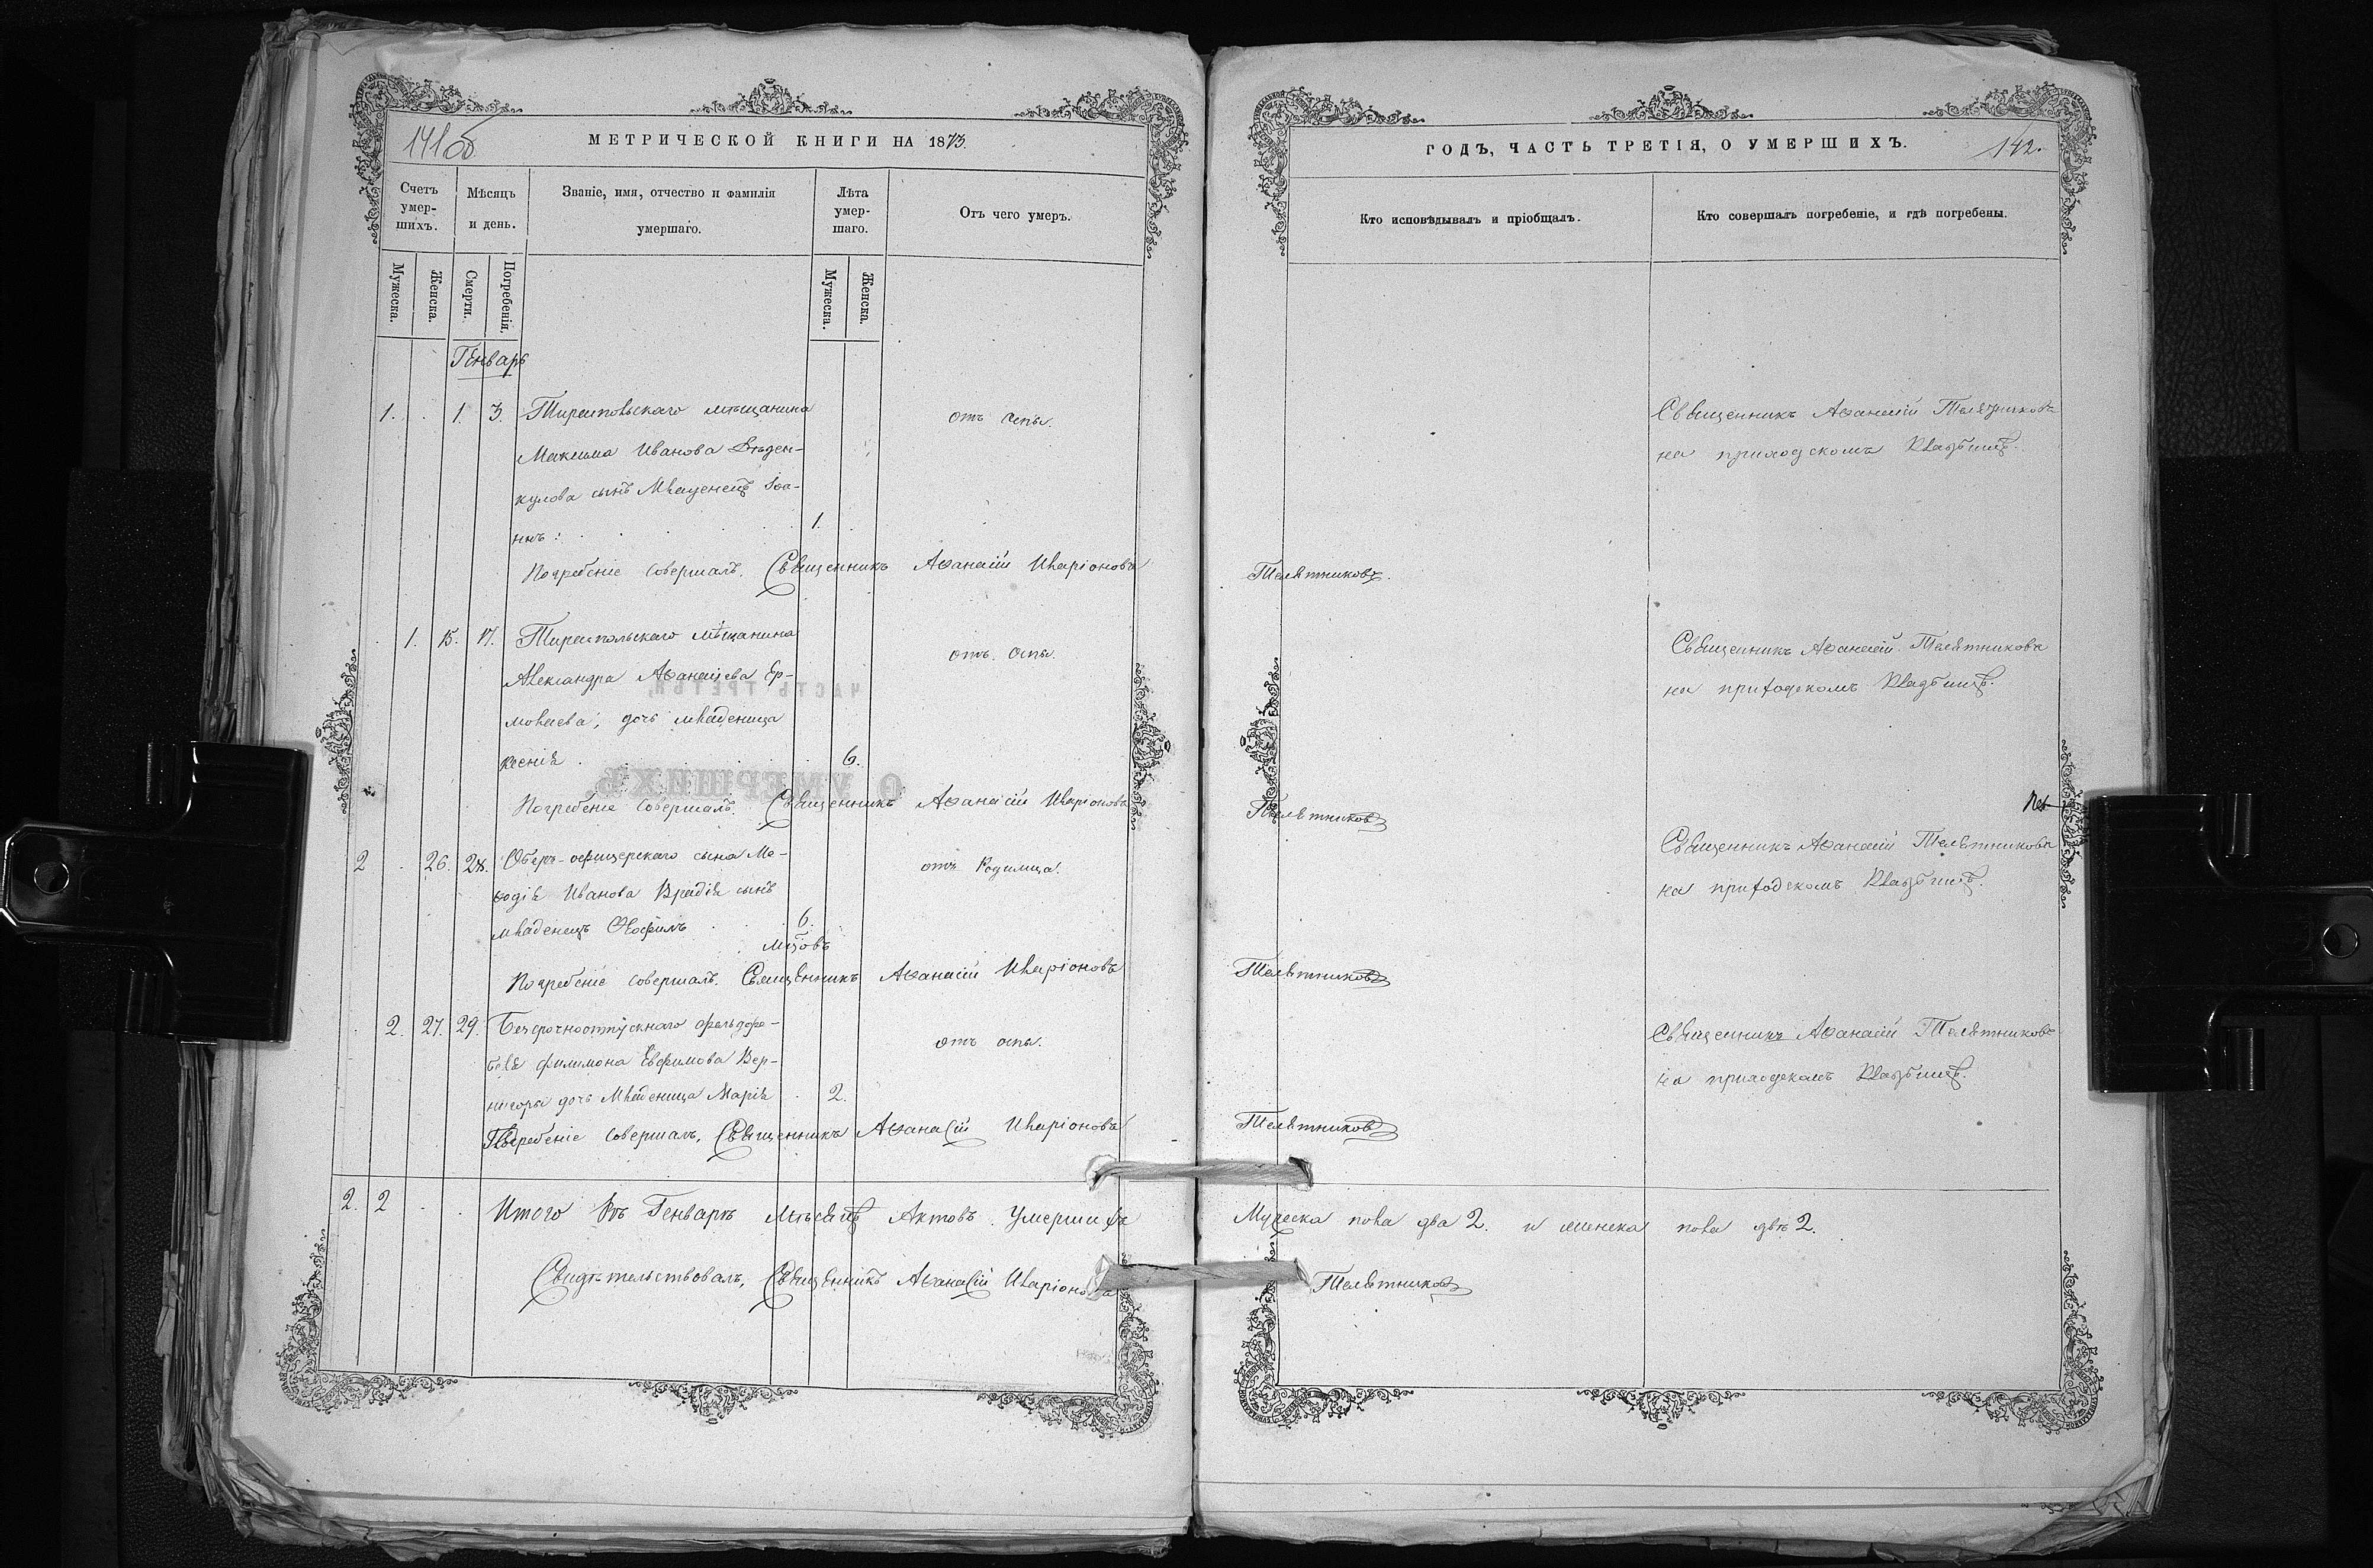 141об
МЕТРИЧЕСКОЙ КНИГИ НА 1873.
Счетъ умер-шихъ.
Мѣсяцъ и день.
Званіе, имя, отчество и фамилія умершаго.
Лѣта умер-шаго.
Отъ чего умеръ.
Мужеска.
Женска.
Смерти.
Погребенія.
Мужеска.
Женска.
Генварь
1. 1. 3. Тираспольскаго мѣщанина
отъ оспы.
Максима Иванова
кулова сынъ Младенецъ Іоа-
ннъ 1.
Погребеніе совершалъ. Священникъ Аѳанасій Иларіоновъ
1. 15. 17. Тираспольскаго мѣщанина
отъ оспы.
Александра Аѳанасіева Ер-
молаева, дочь младеница
Ксенія 6.
Погребеніе совершалъ. Священникъ Аѳанасій Иларіоновъ
2 26. 28. Оберъ-офицерскаго сына Ме-
отъ Родимца.
ѳодія Иванова Врадія сынъ
младенецъ 6.
мцовъ
Погребеніе совершалъ. Священникъ Аѳанасій Иларіоновъ
2. 27. 29. Безсрочноотпускнаго фельдфе-
отъ оспы.
беля Филимона Евфимова Вер-
нигоры дочь Младеница Марія 2.
Погребеніе совершалъ, Священникъ Аѳанасій Иларіоновъ
2. 2 Итого въ Генварѣ Мѣсяцѣ Актовъ Умершихъ
Свидѣтельствовалъ, Священникъ Аѳанасій Иларіоновъ
ГОДЪ, ЧАСТЬ ТРЕТІЯ, О УМЕРШИХЪ.
142.
Кто исповѣдывалъ и пріобщалъ.
Кто совершалъ погребеніе, и гдѣ погребены.
Священникъ Аѳанасій Телятниковъ
на приходскомъ Кладбищѣ.
Телятниковъ.
Священникъ Аѳанасій Телятниковъ
на приходскомъ Кладбищѣ.
Телятниковъ
Священникъ Аѳанасій Телятниковъ
на приходскомъ Кладбищѣ.
Телятниковъ
Священникъ Аѳанасій Телятниковъ
на приходскомъ Кладбищѣ.
Телятниковъ
Мужеска пола два 2. и женска пола двѣ 2.
Телятниковъ